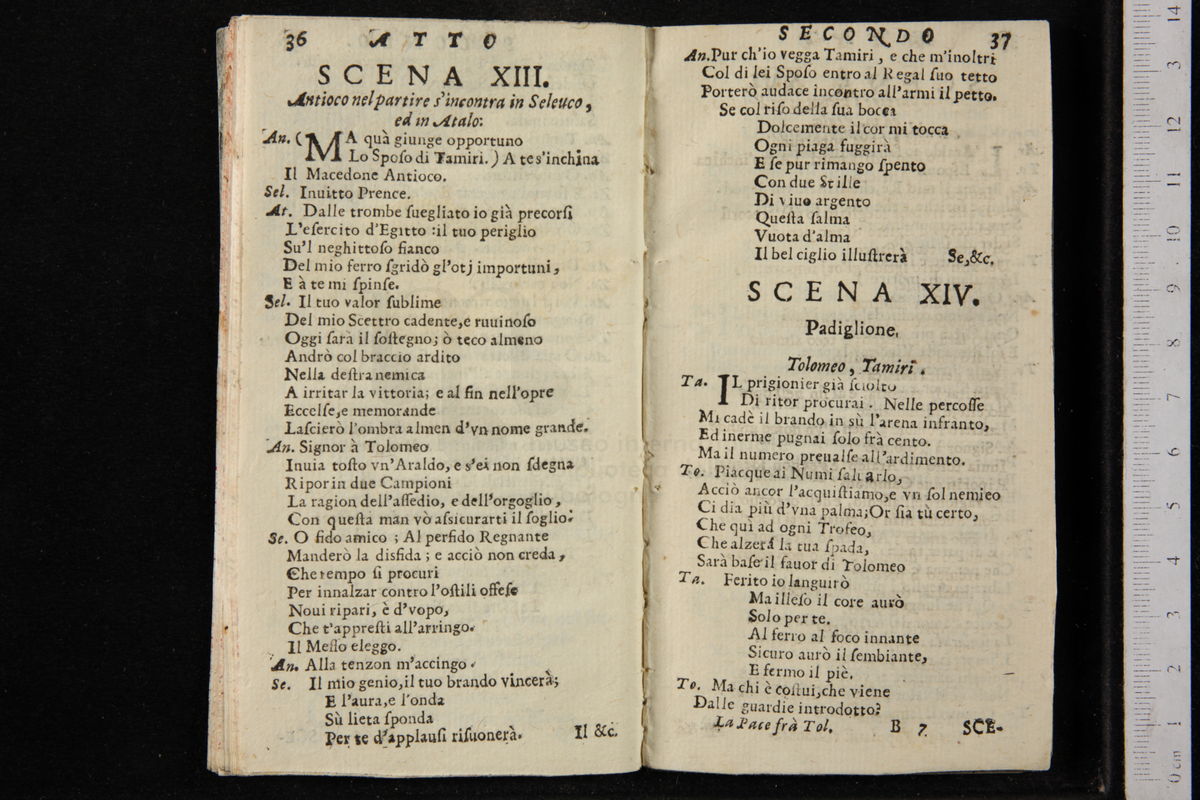 36 ATTO
SCENA XIII.
Antioco nel partire s'incontra in Seleuco,
ed in Atalo.
An. (MA quà giunge opportuno
Lo Spoſo di Tamiri.) A te s'inchina
Il Macedone Antioco.
Sel. Inuitto Prence.
At. Dalle trombe ſuegliato io già precorſi
L'eſercito d'Egitto :il tuo periglio
Su'l neghittoſo fianco
Del mio ferro ſgridò gl'otj importuni,
E à te mi ſpinſe.
Sel. Il tuo valor ſublime
Del mio Scettro cadente,e ruuinoſo
Oggi ſarà il ſoſtegno; ò teco almeno
Andrò col braccio ardito
Nella deſtra nemica
A irritar la vittoria; e al fin nell'opre
Eccelſe,e memorande
Laſcierò l'ombra almen d'vn nome grande.
An. Signor à Tolomeo
Inuia toſto vn'Araldo, e s'ei non ſdegna
Ripor in due Campioni
La ragion dell'aſſedio, e dell'orgoglio,
Con queſta man vò aſsicurarti il ſoglio.
Se. O fido amico ; Al perfido Regnante
Manderò la disfida ; e acciò non creda,
Che tempo ſi procuri
Per innalzar contro l'oſtili offeſe
Noui ripari, è d'vopo,
Che t'appreſti all'arringo.
Il Meſſo eleggo.
An. Alla tenzon m'accingo.
Se. Il mio genio,il tuo brando vincerà;
E l'aura,e l'onda
Sù lieta ſponda
Per te d'applauſi riſuonerà. Il &c.
SECONDO 37
An.Pur ch'io vegga Tamiri, e che m'inoltri
Col di lei Spoſo entro al Regal ſuo tetto
Porterò audace incontro all'armi il petto.
Se col riſo della ſua bocca
Dolcemente il cor mi tocca
Ogni piaga fuggirà
E ſe pur rimango ſpento
Con due Stille
Di viuo argento
Queſta ſalma
Vuota d'alma
Il bel ciglio illuſtrerà Se,&c.
SCENA XIV.
Padiglione.
Tolomeo, Tamiri.
Ta. IL prigionier già ſciolto
Di ritor procurai. Nelle percoſſe
Mi cadè il brando in sù l'arena infranto,
Ed inerme pugnai ſolo frà cento.
Ma il numero preualſe all'ardimento.
To. Piacque ai Numi ſaluarlo,
Acciò ancor l'acquiſtiamo,e vn ſol nemico
Ci dia più d'vna palma;Or ſia tù certo,
Che qui ad ogni Trofeo,
Che alzerà la tua ſpada,
Sarà baſe il fauor di Tolomeo
Ta. Ferito io languirò
Ma illeſo il core aurò
Solo per te.
Al ferro al foco innante
Sicuro aurò il ſembiante,
E fermo il piè.
To. Ma chi è coſtui,che viene
Dalle guardie introdotto?
La Pace frà Tol. B 7 SCE-
0 cm 1 2 3 4 5 6 7 8 9 10 11 12 13 14